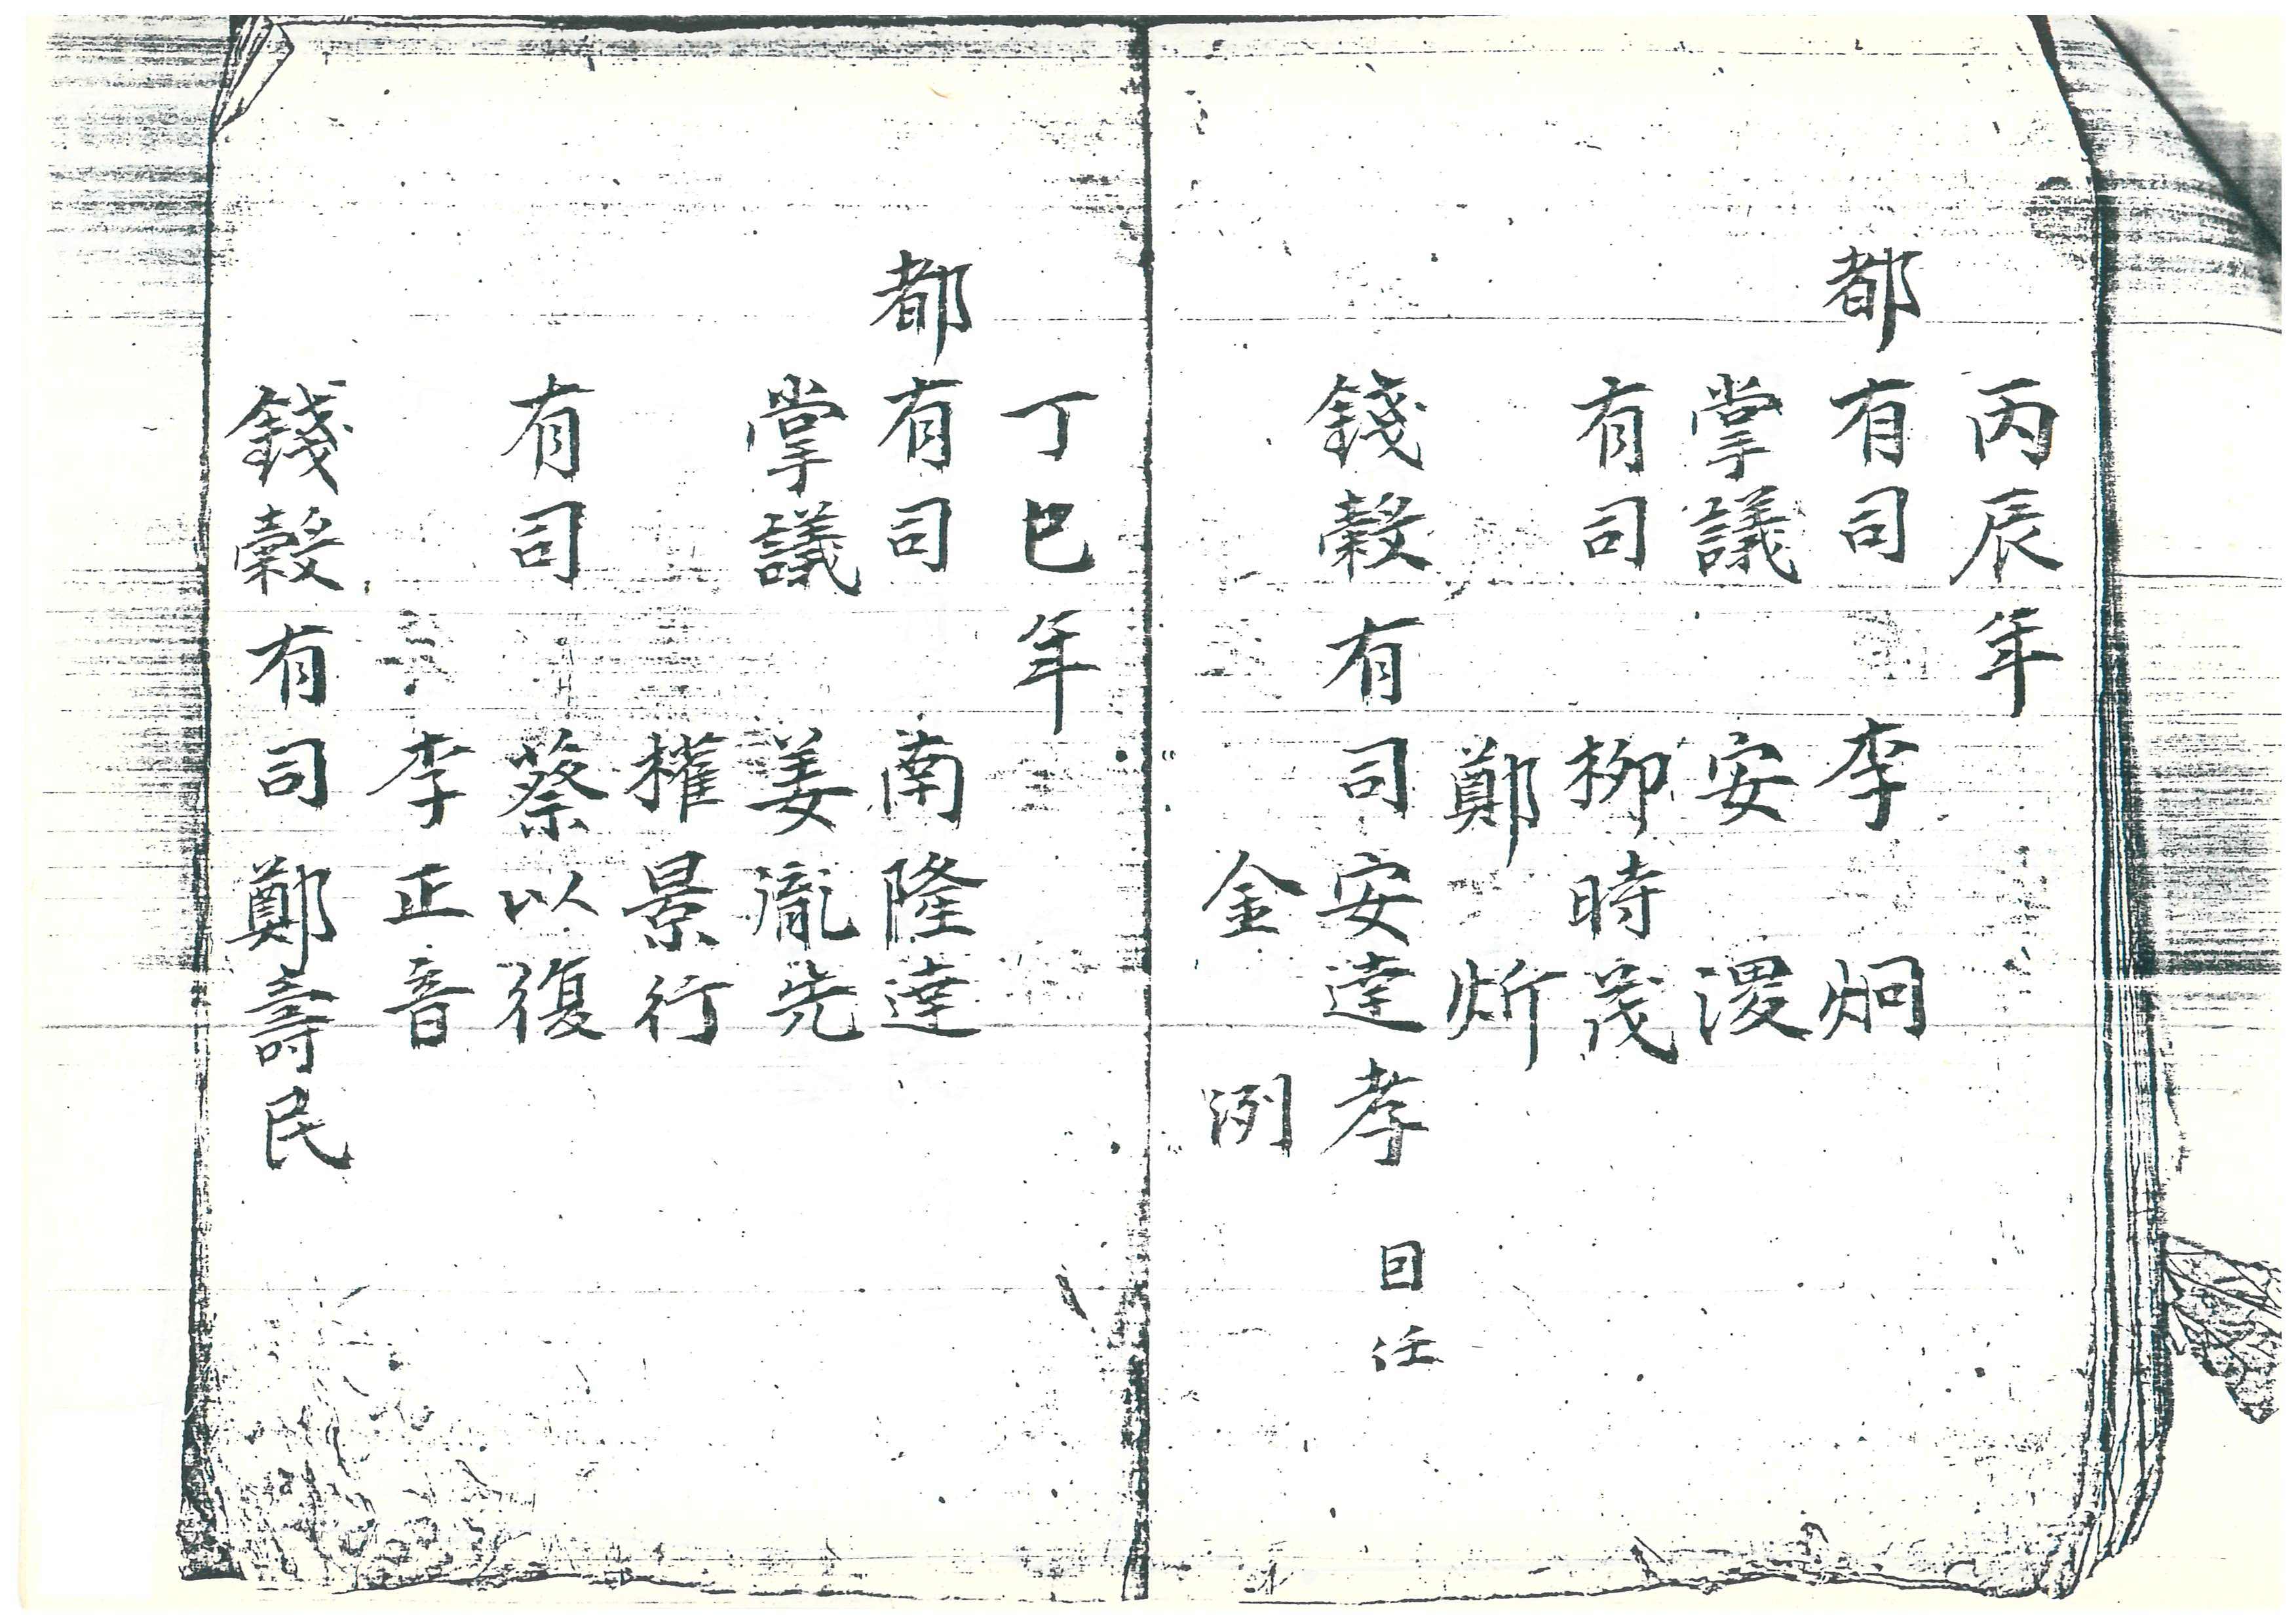 丙辰年
都有司 李炯
掌議 安渂
有司 柳時茂
鄭炘
錢穀有司 安達孝 回任
金洌
丁巳年
都有司 南隆達
掌議 姜胤先
權景行
有司 蔡以復
李正音
錢穀有司 鄭壽民